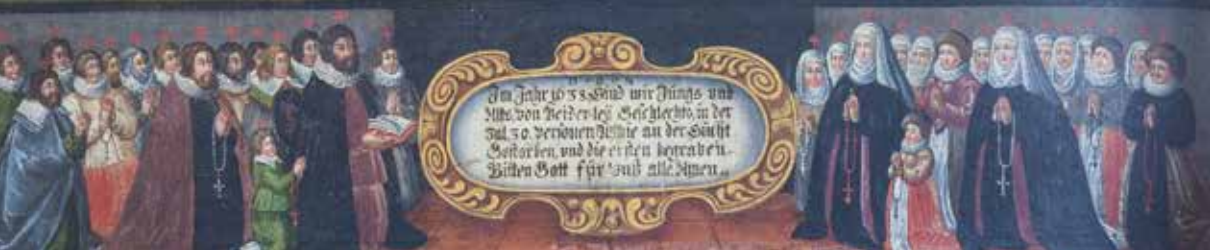 Im Jahr 1638 sind wir Jungs und
Alts, von Beiderley Geschlechts, in der
Zal 30 Personen, Alhie an der Sücht
Gestorben, und die ersten begraben.
Bitten Gott für uns alle. Amen.